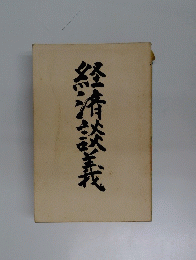 経済談義